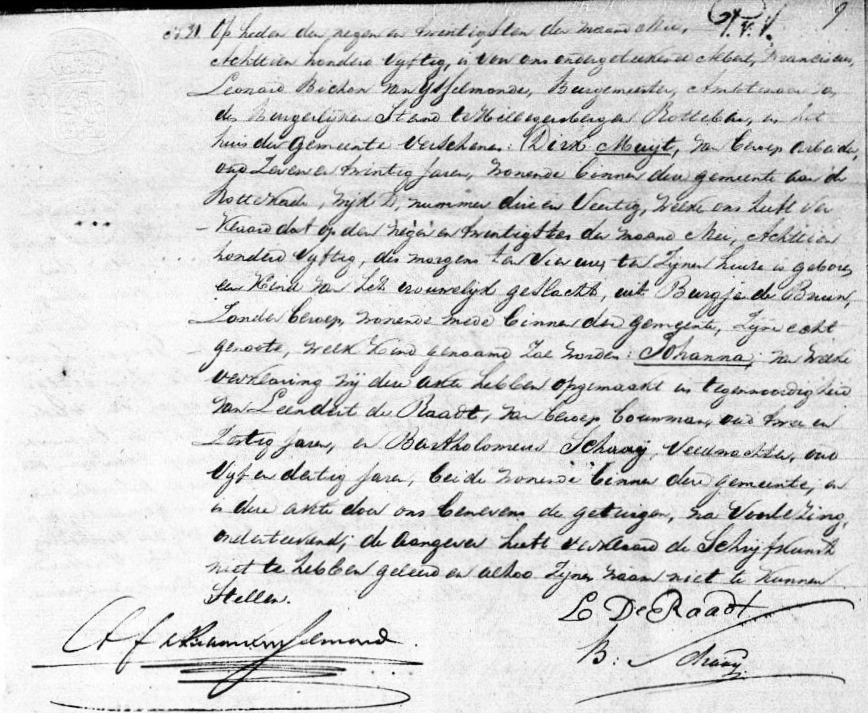 N 31. Op heden den negen en twintigsten der maand Mei,
Achttien honderd vyftig, is voor ons ondergeteekende Albert, Franciscus,
Leonard Bichon van IJsselmonde, Burgemeester, Ambtenaar van
den Burgerlijken Stand te Hillegersberg en Rotteban, in het
huis der Gemeente verschenen: Dirk Muijt, van beroep arbeider,
oud zeven en twintig jaren, wonende binnen deze gemeente aan de
Rottekade, wijk D, nummer drie en veertig, welke ons heeft ver
klaard dat op den negen en twintigsten der maand Mei, Achttien
honderd vyftig, des morgens ten vier ure, ten zijnen huize is geboren
een kind van het vrouwelijk geslacht, uit Burgje de Bruin,
zonder beroep, wonende mede binnen deze gemeente, zijne echt
genoote, welk kind genaamd zal worden: Johanna; van welke
verklaring wij deze akte hebben opgemaakt in tegenwoordigheid
van Leendert de Raadt, van beroep bouwman, oud twee en
zestig jaren, en Bartholomeus Schaaij, Veldwachter, oud
vyf en dertig jaren, beide wonende binnen deze gemeente, en
is deze akte door ons benevens de getuigen, na voorlezing,
onderteekend; de aangever heeft verklaard de Schrijfkunst
niet te hebben geleerd en alzoo zijnen naam niet te kunnen
stellen.
L. De Raadt
B. Schaaij